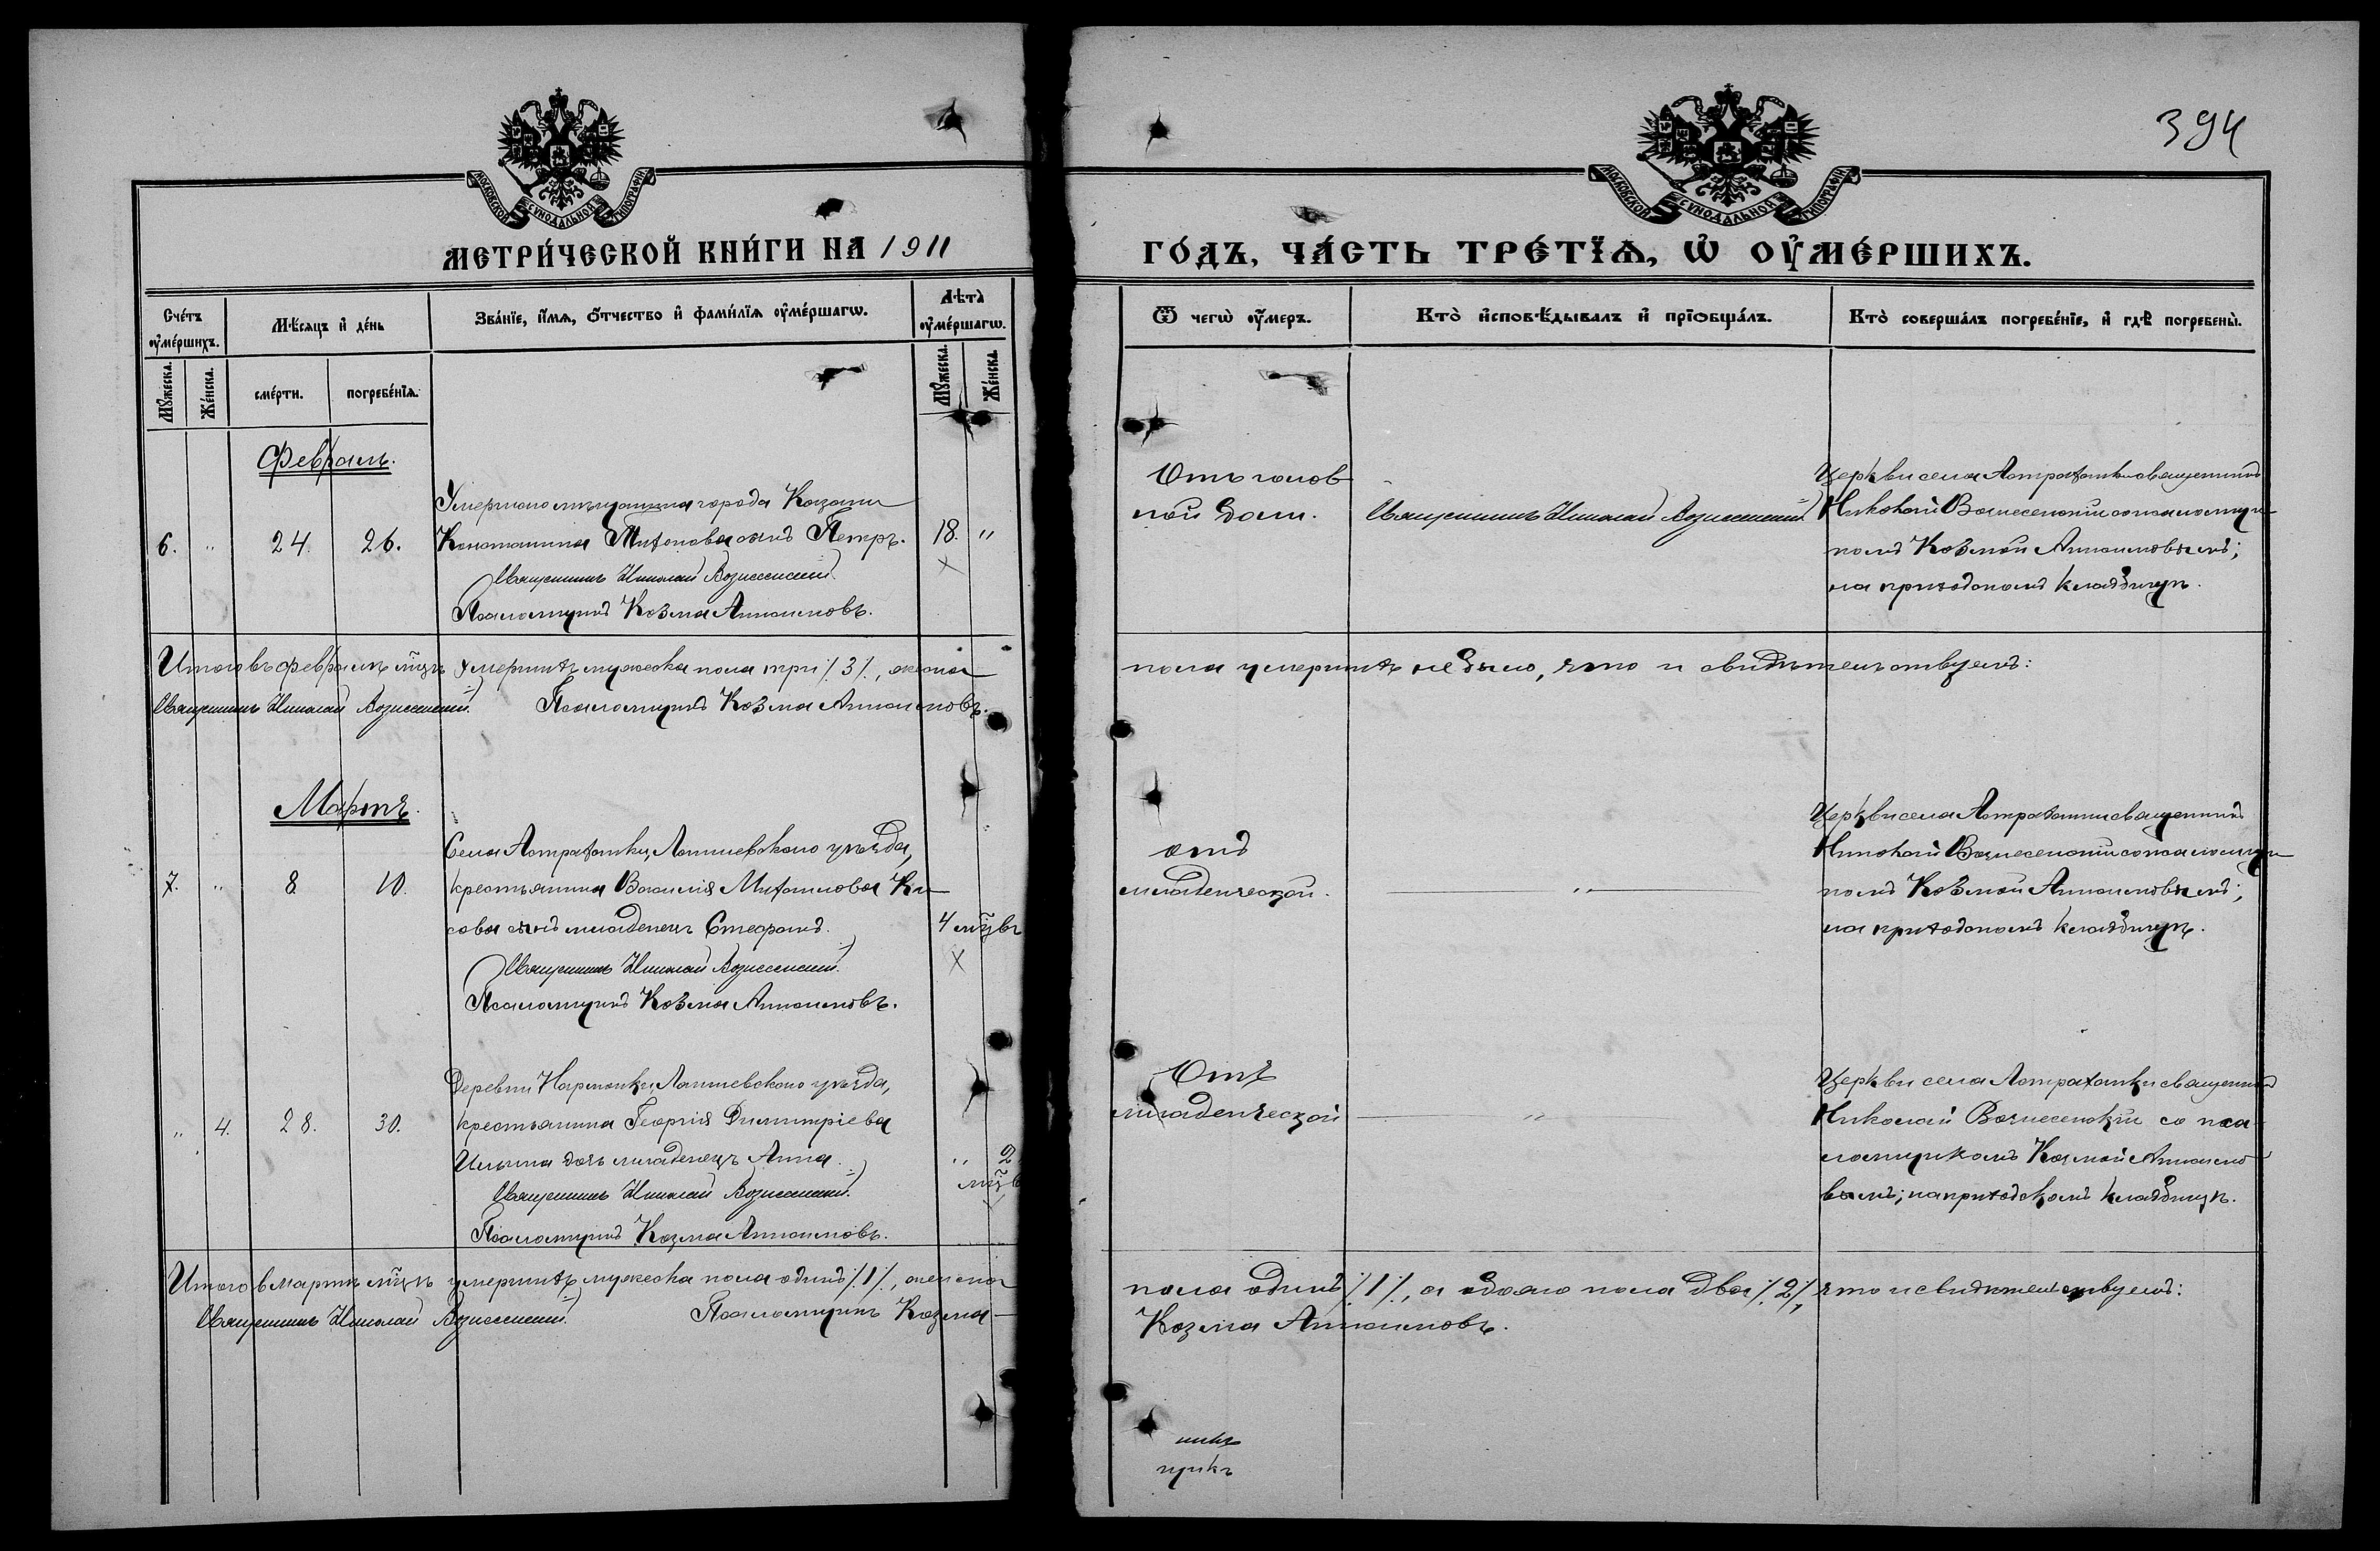 394
МОСКОВСКОЙ СѴНОДАЛЬНОЙ ТИПОГРАФІИ
МОСКОВСКОЙ СѴНОДАЛЬНОЙ ТИПОГРАФІИ
МЕТРИ́ЧЕСКОЙ КНИ́ГИ НА 1911 ГО́ДЪ, ЧА́СТЬ ТРЕ́ТІѦ, Ѡ҆ ОУ҆МЕ́РШИХЪ.
Сче́тъ оу҆ме́ршихъ.
Мꙋ́жеска.
Же́нска.
Мѣ́сяцъ и҆ де́нь
сме́рти.
погребе́нїѧ.
Зва́нїе, и҆́мѧ, ѻ҆́тчество и҆ фами́лїѧ оу҆ме́ршагѡ.
Лѣ́та оу҆ме́ршагѡ.
Мꙋ́жеска.
Же́нска.
Ѿ чегѡ̀ оу҆́меръ.
Кто̀ и҆сповѣ́дывалъ и҆ прїѻбща́лъ.
Кто̀ соверша́лъ погребе́нїе, и҆ гдѣ̀ погребены̀.
Февраль.
6. " 24. 26.
Умершаго мѣщанина города Казани
Константина Тихонова сынъ Петръ.
18. "
Священникъ Николай Вознесенскій
Псаломщикъ Козма Анпилоговъ.
Отъ голов
ной боли.
Священникъ Николай Вознесенскій
Церкви села Астраханки священникъ
Николай Вознесенскій со псаломщи
комъ Козмой
на приходскомъ кладбищѣ.
Итого въ февралѣ мцѣ умершихъ мужеска пола три /.3/., женска пола умершихъ не было, что и свидѣтельствуемъ:
Священникъ Николай Вознесенскій. Псаломщикъ Козма
Мартъ.
7. " 8 10.
Села Астраханки, Лаишевскаго уѣзда,
крестьянина Василія Михаилова Ки
сова сынъ младенецъ Стефанъ.
4 мцвъ
Священникъ Николай Вознесенскій.
Псаломщикъ Козма
отъ
младенческой.
"
Церкви села Астраханки священникъ
Николай Вознесенскій со псаломщи
комъ Козмой
на приходскомъ кладбищѣ.
" 4. 28. 30.
Деревни Нармонки, Лаишевскаго уѣзда,
крестьянина Георгія Димитріева
Ильина дочь младенецъ Анна.
" 2 мцв
Священникъ Николай Вознесенскій.
Псаломщикъ Козма
Отъ
младенческой
"
Церкви села Астраханки священникъ
Николай Вознесенскій со пса
ломщикомъ Козмой
вымъ; на приходскомъ кладбищѣ.
Итого в мартѣ мцѣ умершихъ мужеска пола одинъ /.1/., женска пола одинъ /.1/., а обоего пола два /.2/., что и свидѣтельствуемъ:
Священникъ Николай Вознесенскій. Псаломщикъ Козма
Козма
никъ
щикъ